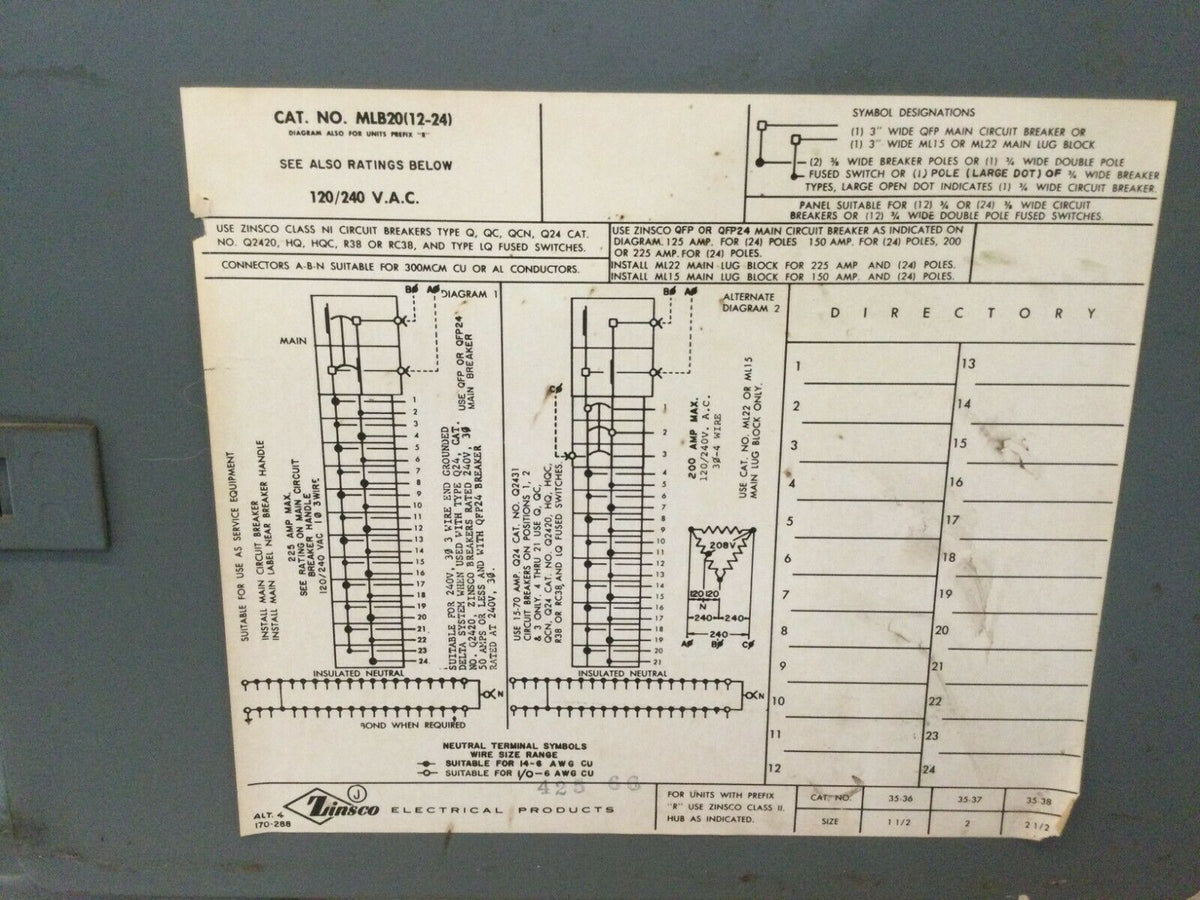 CAT. NO. MLB20(12-24)
DIAGRAM ALSO FOR UNITS PREFIX "R"
SEE ALSO RATINGS BELOW
120/240 V.A.C.
SYMBOL DESIGNATIONS
(1) 3" WIDE QFP MAIN CIRCUIT BREAKER OR
(1) 3" WIDE ML15 OR ML22 MAIN LUG BLOCK
(2) ⅜ WIDE BREAKER POLES OR (1) ¾ WIDE DOUBLE POLE
FUSED SWITCH OR (1) POLE (LARGE DOT) OF ¾ WIDE BREAKER
TYPES, LARGE OPEN DOT INDICATES (1) ¾ WIDE CIRCUIT BREAKER.
PANEL SUITABLE FOR (12) ¾ OR (24) ⅜ WIDE CIRCUIT
BREAKERS OR (12) ¾ WIDE DOUBLE POLE FUSED SWITCHES.
USE ZINSCO CLASS NI CIRCUIT BREAKERS TYPE Q, QC, QCN, Q24 CAT.
NO. Q2420, HQ, HQC, R38 OR RC38, AND TYPE LQ FUSED SWITCHES.
CONNECTORS A-B-N SUITABLE FOR 300MCM CU OR AL CONDUCTORS.
USE ZINSCO QFP OR QFP24 MAIN CIRCUIT BREAKER AS INDICATED ON
DIAGRAM. 125 AMP. FOR (24) POLES 150 AMP. FOR (24) POLES, 200
OR 225 AMP. FOR (24) POLES.
INSTALL ML22 MAIN LUG BLOCK FOR 225 AMP AND (24) POLES.
INSTALL ML15 MAIN LUG BLOCK FOR 150 AMP. AND (24) POLES.
BØ AØ DIAGRAM 1
MAIN
1
2
3
4
5
6
7
8
9
10
11
12
13
14
15
16
17
18
19
20
21
22
23
24
SUITABLE FOR USE AS SERVICE EQUIPMENT
INSTALL MAIN CIRCUIT BREAKER
INSTALL MAIN LABEL NEAR BREAKER HANDLE
225 AMP MAX.
SEE RATING ON MAIN CIRCUIT
BREAKER HANDLE
120/240 VAC 1Ø 3WIRE
USE QFP OR QFP24
MAIN BREAKER
SUITABLE FOR 240V, 3Ø 3 WIRE END GROUNDED
DELTA SYSTEM WHEN USED WITH TYPE Q24, CAT.
NO. Q2420, ZINSCO BREAKERS RATED 240V, 3Ø
50 AMPS OR LESS AND WITH QFP24 BREAKER
RATED AT 240V, 3Ø.
INSULATED NEUTRAL
N
BOND WHEN REQUIRED
BØ AØ
ALTERNATE
DIAGRAM 2
CØ
1
2
3
4
5
6
7
8
9
10
11
12
13
14
15
16
17
18
19
20
21
USE 15-70 AMP. Q24 CAT. NO. Q2431
CIRCUIT BREAKERS ON POSITIONS 1, 2
& 3 ONLY. 4 THRU 21 USE Q, QC,
QCN, Q24 CAT. NO. Q2420, HQ, HQC,
R38 OR RC38, AND LQ FUSED SWITCHES.
200 AMP MAX.
120/240V. A.C.
3Ø-4 WIRE
USE CAT. NO. ML22 OR ML15
MAIN LUG BLOCK ONLY.
208V
120 120
N
240 240
240
AØ BØ CØ
INSULATED NEUTRAL
N
NEUTRAL TERMINAL SYMBOLS
WIRE SIZE RANGE
SUITABLE FOR 14-6 AWG CU
SUITABLE FOR 1/0-6 AWG CU
425 66
DIRECTORY
1 13
2 14
3 15
4 16
5 17
6 18
7 19
8 20
9 21
10 22
11 23
12 24
ALT. 4
170-288
J
Zinsco ELECTRICAL PRODUCTS
FOR UNITS WITH PREFIX
"R" USE ZINSCO CLASS II.
HUB AS INDICATED.
CAT. NO. 35-36 35-37 35-38
SIZE 1 1/2 2 2 1/2